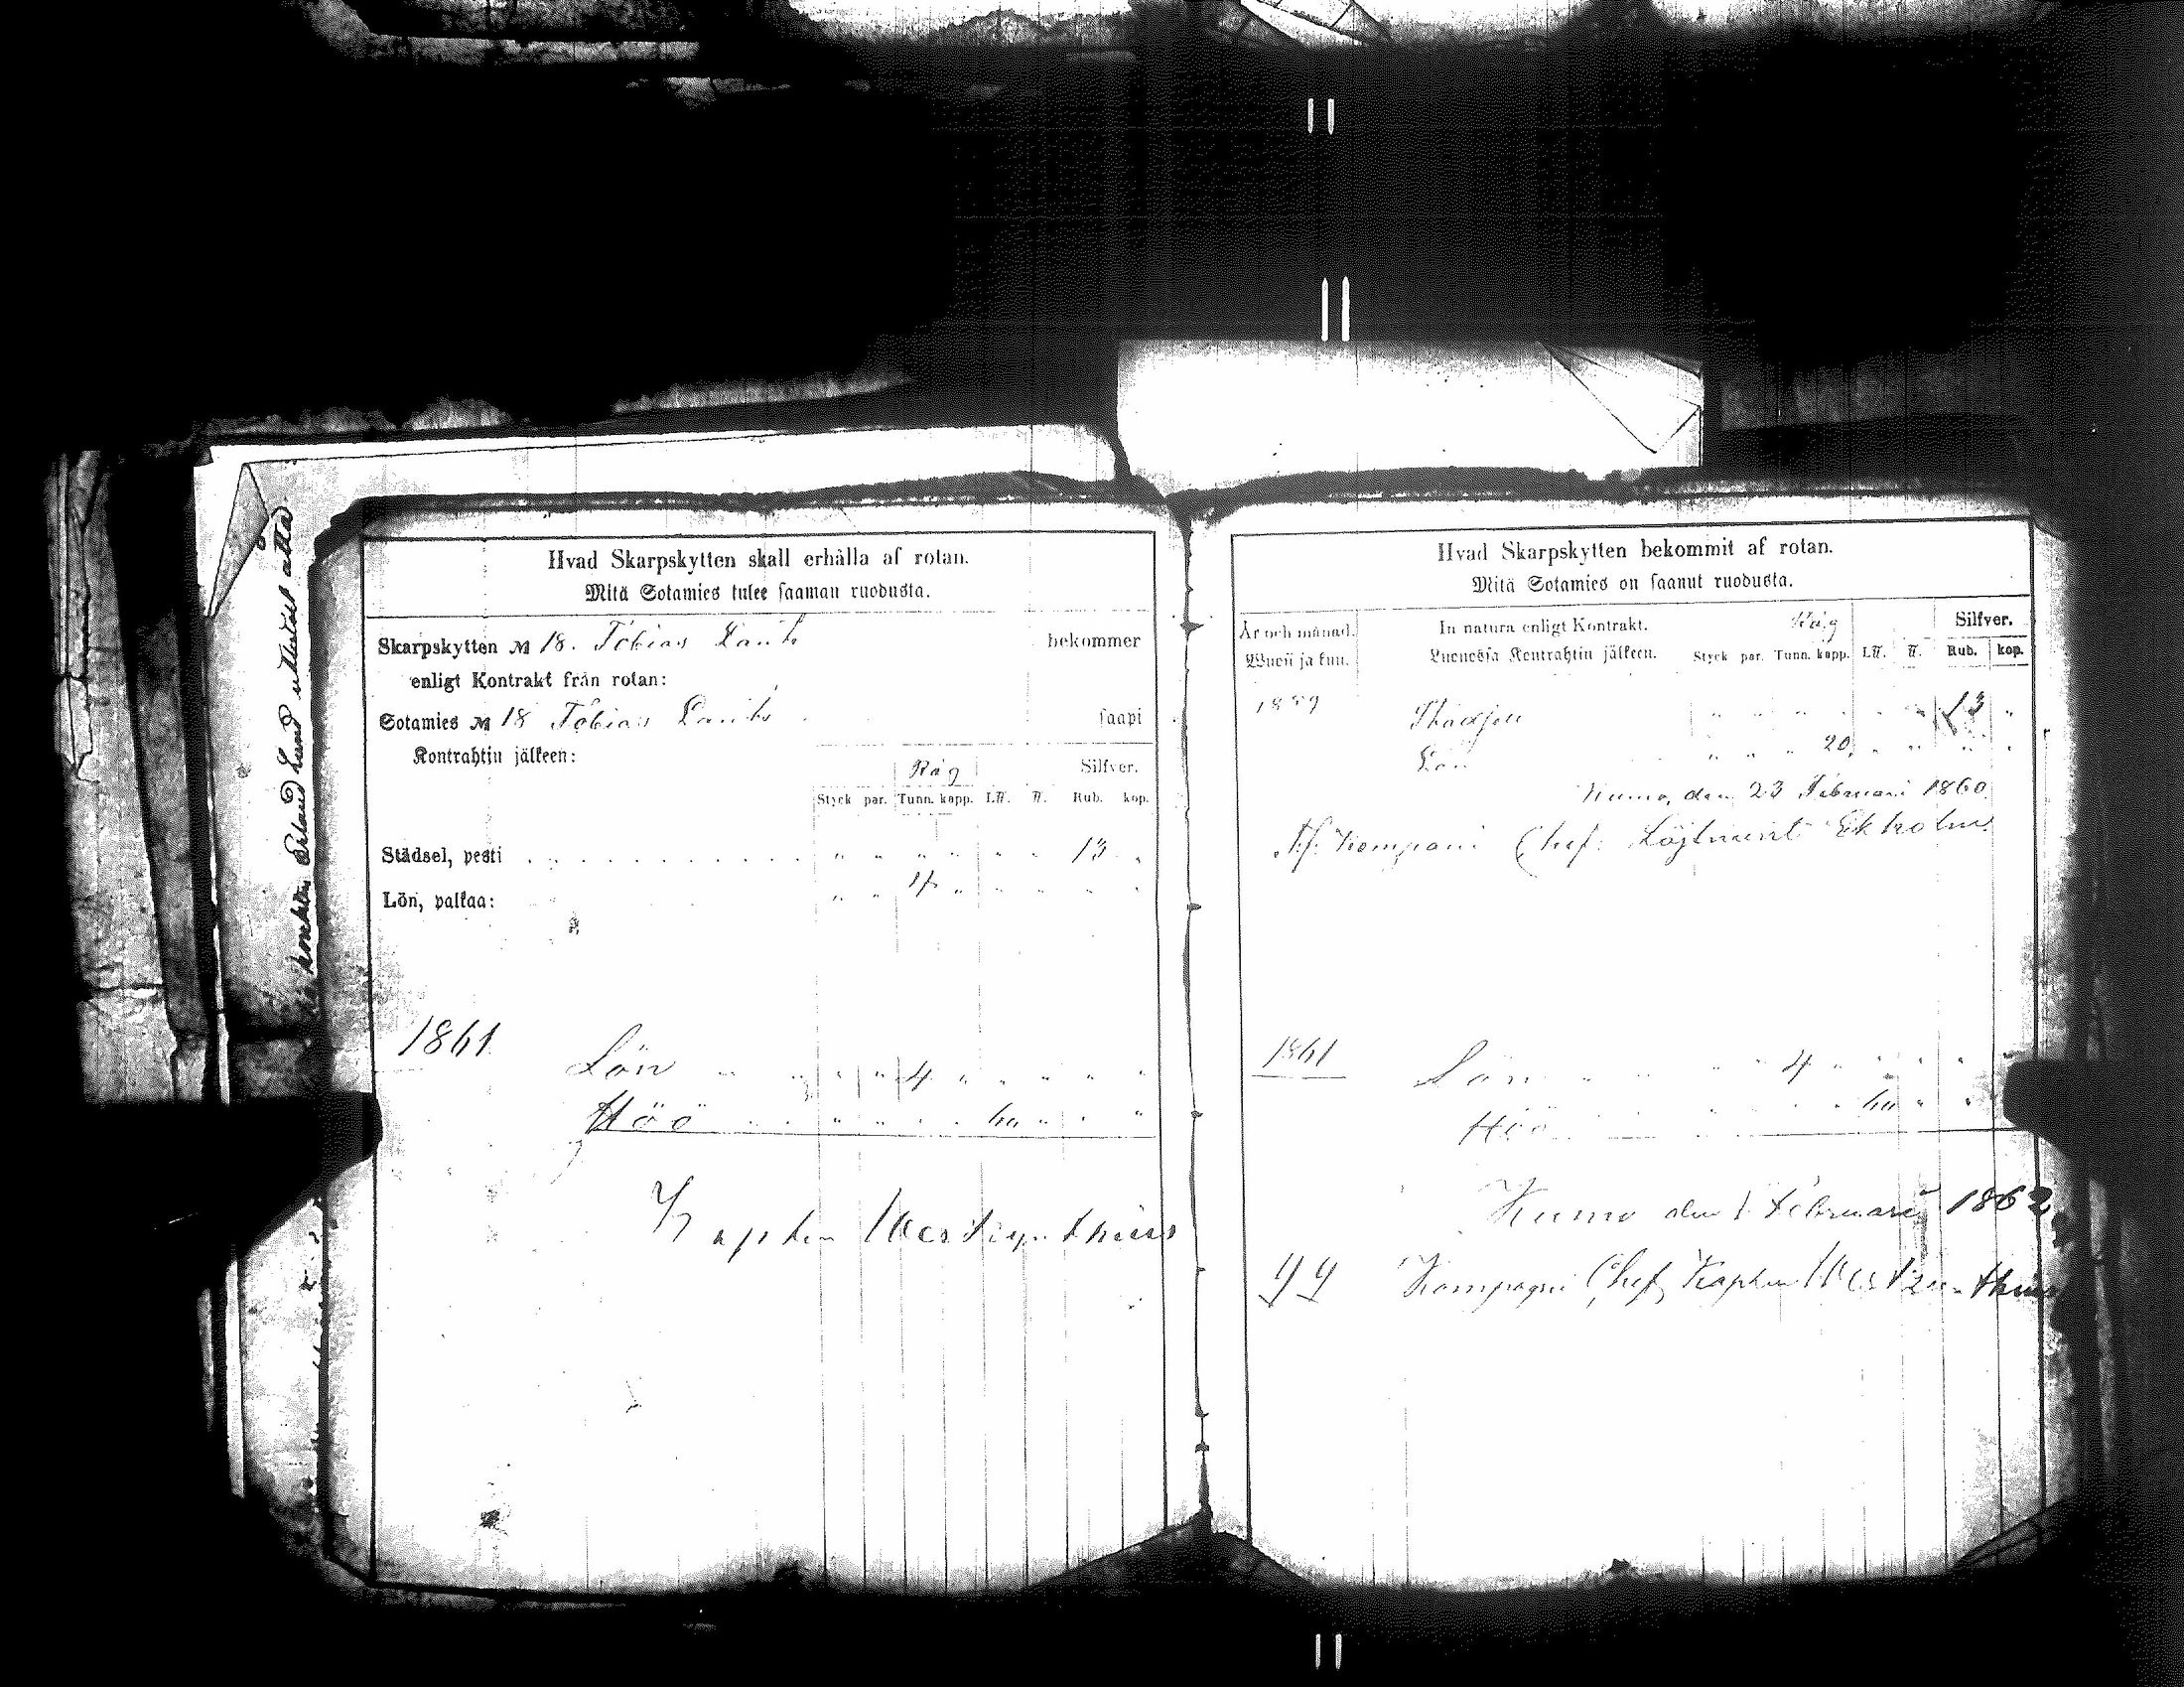 Hvad Skarpskytten skall erhålla af rotan.
Mitä Sotamies tulee saaman ruodusta.
Skarpskytten № 18. Tobias bekommer
enligt Kontrakt från rotan:
Sotamies № 18 Tobias saapi
Kontrahtin jälkeen:
Råg Silfver.
Styck par. Tunn. kapp. L℔. ℔. Rub. kop.
Städsel, pesti . . . . . . . . . . . . " " " " " " 13 "
Lön, palkaa: " " 4 " " " " "
1861
Lön " " " " 4 " " " " "
Höö
Kapten
Hvad Skarpskytten bekommit af rotan.
Mitä Sotamies on saanut ruodusta.
År och månad. In natura enligt Kontrakt. Råg Silfver.
Wuosi ja kuu. Luonossa Kontrahtin jälkeen. Styck par. Tunn. kapp. L℔. ℔. Rub. kop.
1859 13 "
Lön 20
Kumo, den 23 Februari 1860
Kompani Chef: Löjtnant Ekholm
1861 Lön 4
Höö
Kumo den 1 Februari 1862
Kompagni Chef, Kapten
Erland Lund åtta